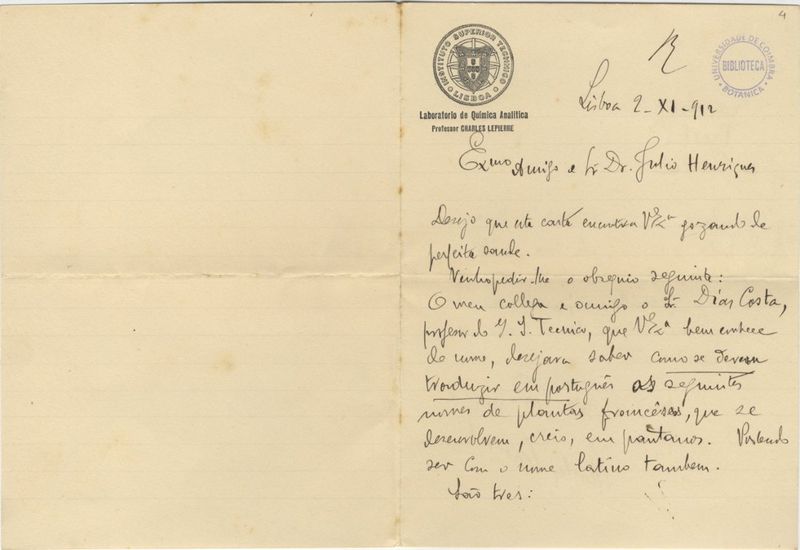 4
R
INSTITUTO SUPERIOR TECHNICO
LISBOA
UNIVERSIDADE DE COIMBRA
BIBLIOTECA
BOTANICA
Laboratorio de Quimica Analitica
Professor CHARLES LEPIERRE
Lisboa 2-XI-912
Exmo Amigo e Sr Dr. Julio Henriques
Desejo que esta carta encontra V Exa gozando de
perfeita saude.
Venho pedir-lhe o obsequio seguinte:
O meu collega e amigo o Sr. Dias Costa,
professor do I. S. Tecnico, que V Exa bem conhece
de nome, desejava saber como se devem
traduzir em português os seguintes
nomes de plantas francêsas, que se
desenvolvem, creio, em pantanos. Podendo
ser com o nome latino tambem.
São tres: